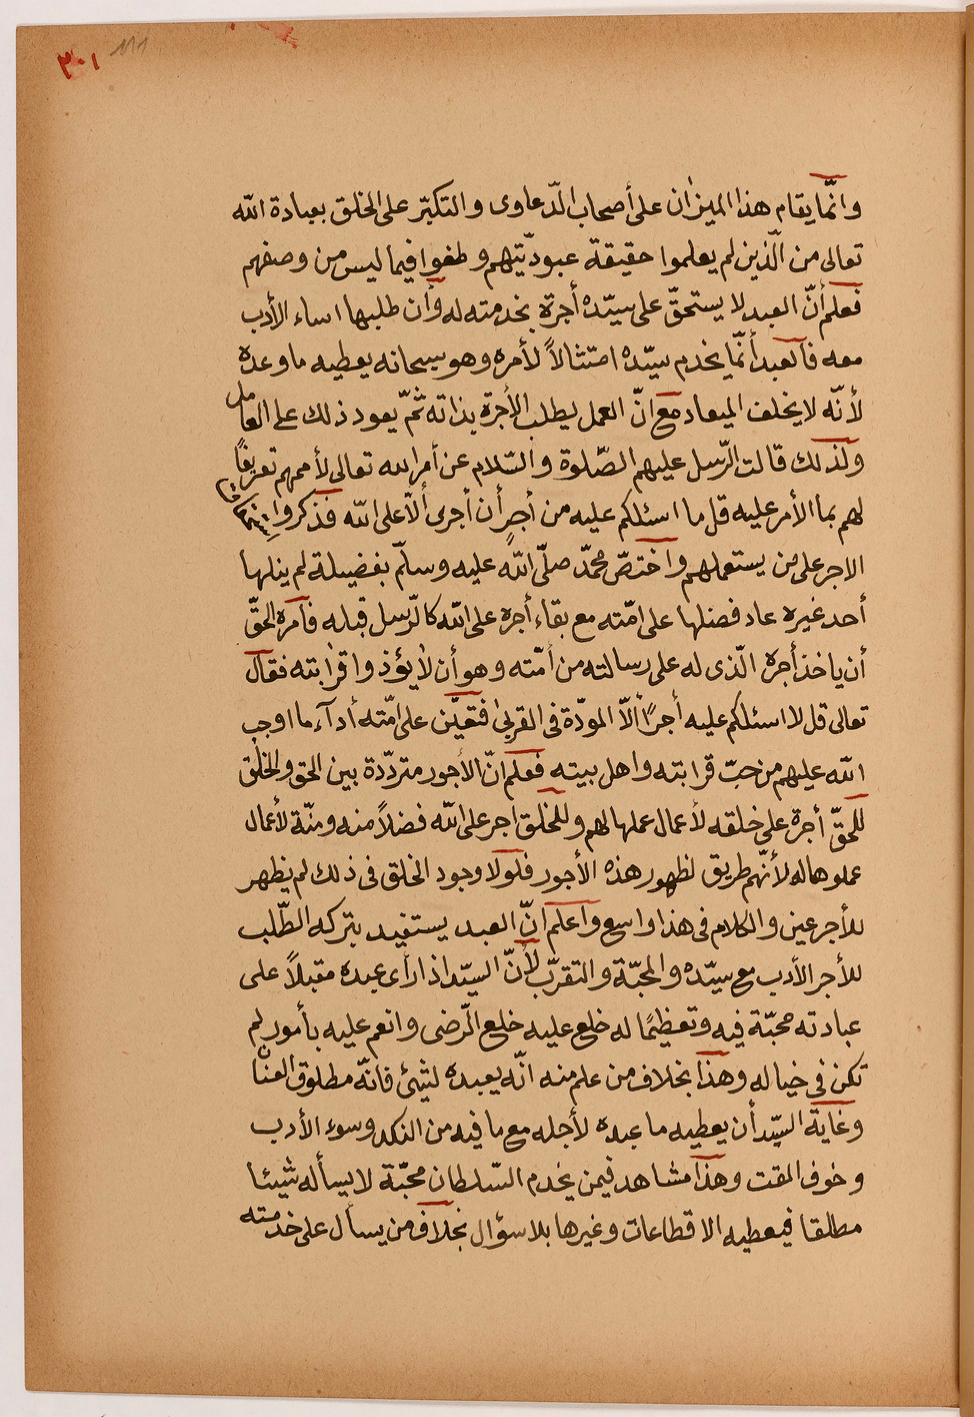 ٣٠١ ١١١
وانّما يقام هذا الميزان على أصحاب الدّعاوى والتكبّر على الخلق بعبادة الله
تعالى من الّذين لم يعلموا حقيقة عبوديّتهم وطغوا فيما ليس من وصفهم
فعلم أنّ العبد لا يستحقّ على سيّده أجرة بخدمته له وأن طلبها اساء الأدب
معه فالعبد أنّما يخدم سيّده امتثالاً لأمره وهو سبحانه يعطيه ما وعده
لأنّه لا يخلف الميعاد مع انّ العمل يطلب الأجرة بذاته ثمّ يعود ذلك على العامل
ولذلك قالت الرّسل عليهم الصّلوة والسّلام عن أمر الله تعالى لأممهم تعريفًا
لهم بما الأمر عليه قل ما اسئلكم عليه من أجر أن أجرى ألّا على الله فذكروا استحقاق
الاجر على من يستعملهم واختصّ محمّد صلّى الله عليه وسلّم بفضيلة لم ينلها
أحد غيره عاد فضلها على امّته مع بقاء أجره على الله كالرّسل قبله فأمره الحقّ
أن ياخذ أجره الّذى له على رسالته من أمّته وهو أن لا يؤذوا قرابته فقال
تعالى قل لا اسئلكم عليه أجرًا ألّا المودّة فى القربى فتعيّن على امّته أدآء ما اوجب
الله عليهم من حبّ قرابته واهل بيته فعلم انّ الأجور متردّدة بين الحق والخلق
للحقّ أجرة على خلقه لأعمال عملها لهم وللخلق اجر على الله فضلاً منه ومنّة لأعمال
عملوها له لأنّهم طريق لظهور هذه الأجور فلولا وجود الخلق فى ذلك لم يظهر
للأجر عين والكلام فى هذا واسع واعلم انّ العبد يستفيد بتركه الطّلب
للأجر الأدب مع سيّده والمحبّة والتقرّب لأنّ السيّد اذا رأى عبده مقبلاً على
عبادته محبّة فيه وتعظيمًا له خلع عليه خلع الرّضى وانعم عليه بأمور لم
تكن فى خياله وهذا بخلاف من علم منه انّه يعبده لشيئ فانّه مطلوق العنان
وغاية السيّد أن يعطيه ما عبده لأجله مع ما فيه من النكد وسوء الأدب
وخوف المقت وهذا مشاهد فيمن يخدم السّلطان محبّة لا يسأله شيئا
مطلقا فيعطيه الاقطاعات وغيرها بلا سؤال بخلاف من يسأل على خدمته